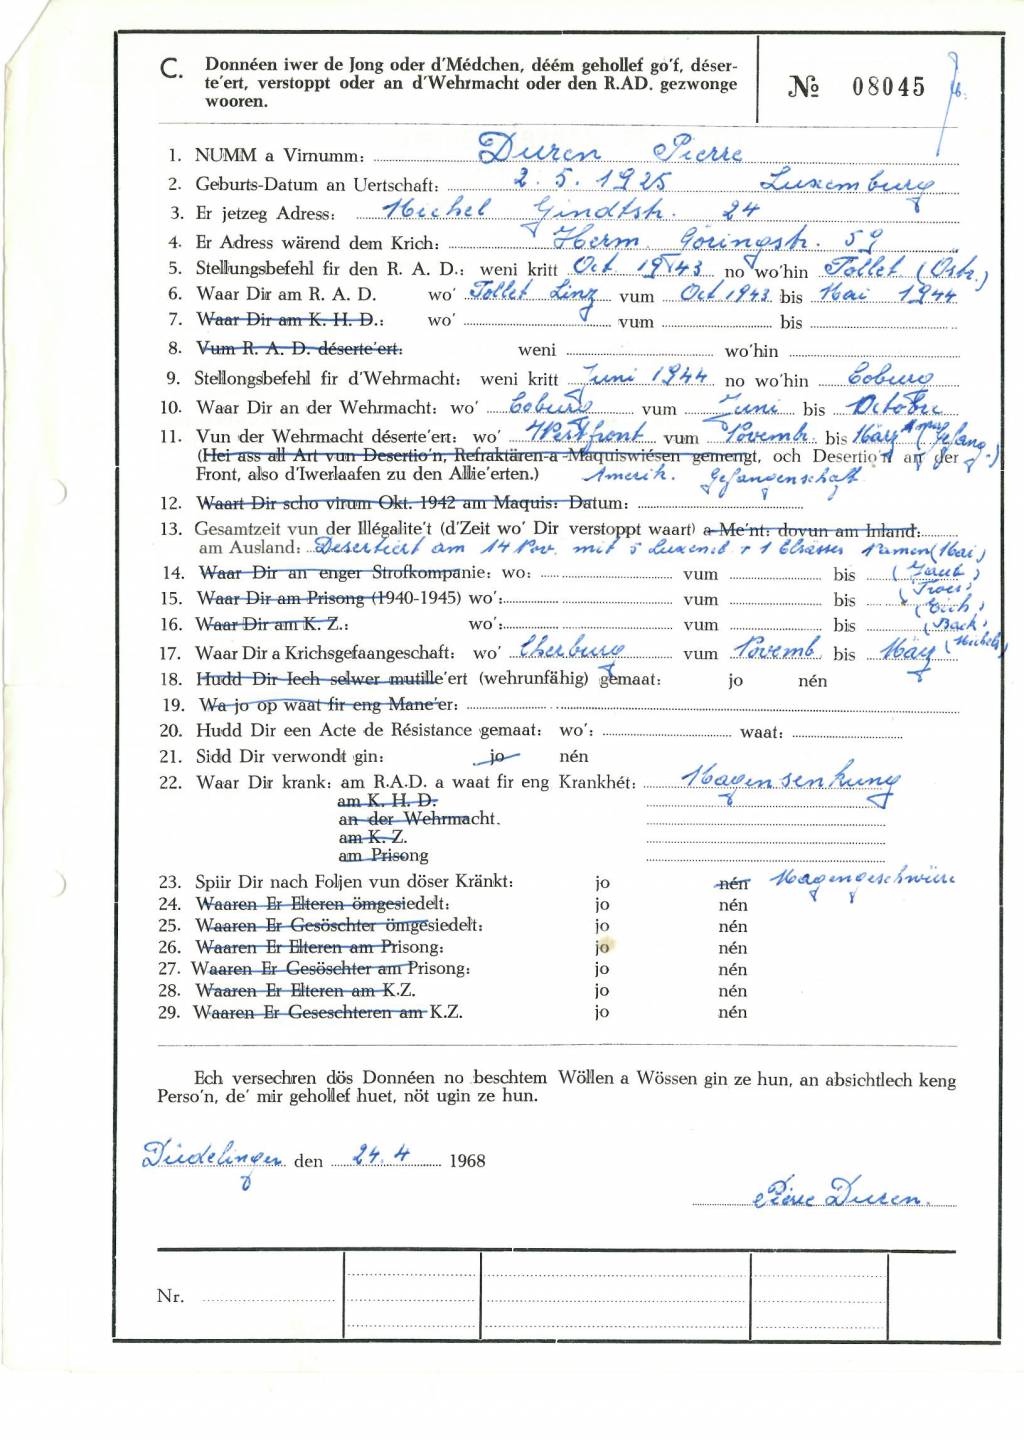 C. Donnéen iwer de Jong oder d'Médchen, déém gehollef go'f, déser-
te'ert, verstoppt oder an d'Wehrmacht oder den R.AD. gezwonge
wooren.
№ 08045
1. NUMM a Virnumm: Duren Pierre
2. Geburts-Datum an Uertschaft: 2.5.1925 Luxemburg
3. Er jetzeg Adress: Michel Gindtstr. 24
4. Er Adress wärend dem Krich: Herm. Göringstr. 59
5. Stellungsbefehl fir den R. A. D.: weni kritt Oct 1943 no wo'hin Tollet (Ostr.)
6. Waar Dir am R. A. D. wo' Tollet Linz vum Oct 1943 bis Mai 1944
7. Waar Dir am K. H. D.: wo' vum bis
8. Vum R. A. D. déserte'ert: weni wo'hin
9. Stellongsbefehl fir d'Wehrmacht: weni kritt Juni 1944 no wo'hin Coburg
10. Waar Dir an der Wehrmacht: wo' Coburg vum Juni bis Octobre
11. Vun der Wehrmacht déserte'ert: wo' Westfront vum Novemb. bis März (Gefang.)
(Hei ass all Art vun Desertio'n, Refraktären-a -Maquiswiésen gemengt, och Desertio'n an der
Front, also d'Iwerlaafen zu den Allie'erten.) Amerik. Gefangenschaft
12. Waart Dir scho virum Okt. 1942 am Maquis: Datum:
13. Gesamtzeit vun der Illégalite't (d'Zeit wo' Dir verstoppt waart) a Me'nt: dovun am Inland:
am Ausland: Desertiert am 14 Nov. mit 5 Luxemb + 1 Elsässer Namen (Mai)
14. Waar Dir an enger Strofkompanie: wo: vum bis (Jaub)
15. Waar Dir am Prisong (1940-1945) wo': vum bis (Troes)
16. Waar Dir am K. Z.: wo': vum bis (Eich)
(Back)
17. Waar Dir a Krichsgefaangeschaft: wo' Cherburg vum Novemb. bis März (Michels)
18. Hudd Dir Iech selwer mutille'ert (wehrunfähig) gemaat: jo nén
19. Wa jo op waat fir eng Mane'er:
20. Hudd Dir een Acte de Résistance gemaat: wo': waat:
21. Sidd Dir verwondt gin: jo nén
22. Waar Dir krank: am R.A.D. a waat fir eng Krankhét: Magensenkung
am K. H. D.
an der Wehrmacht.
am K. Z.
am Prisong
23. Spiir Dir nach Foljen vun döser Kränkt: jo nén Magengeschwüre
24. Waaren Er Elteren ömgesiedelt: jo nén
25. Waaren Er Gesöschter ömgesiedelt: jo nén
26. Waaren Er Elteren am Prisong: jo nén
27. Waaren Er Gesöschter am Prisong: jo nén
28. Waaren Er Elteren am K.Z. jo nén
29. Waaren Er Geseschteren am K.Z. jo nén
Ech versechren dös Donnéen no beschtem Wöllen a Wössen gin ze hun, an absichtlech keng
Perso'n, de' mir gehollef huet, nöt ugin ze hun.
Düdelingen den 24.4 1968
Pierre Duren.
Nr.